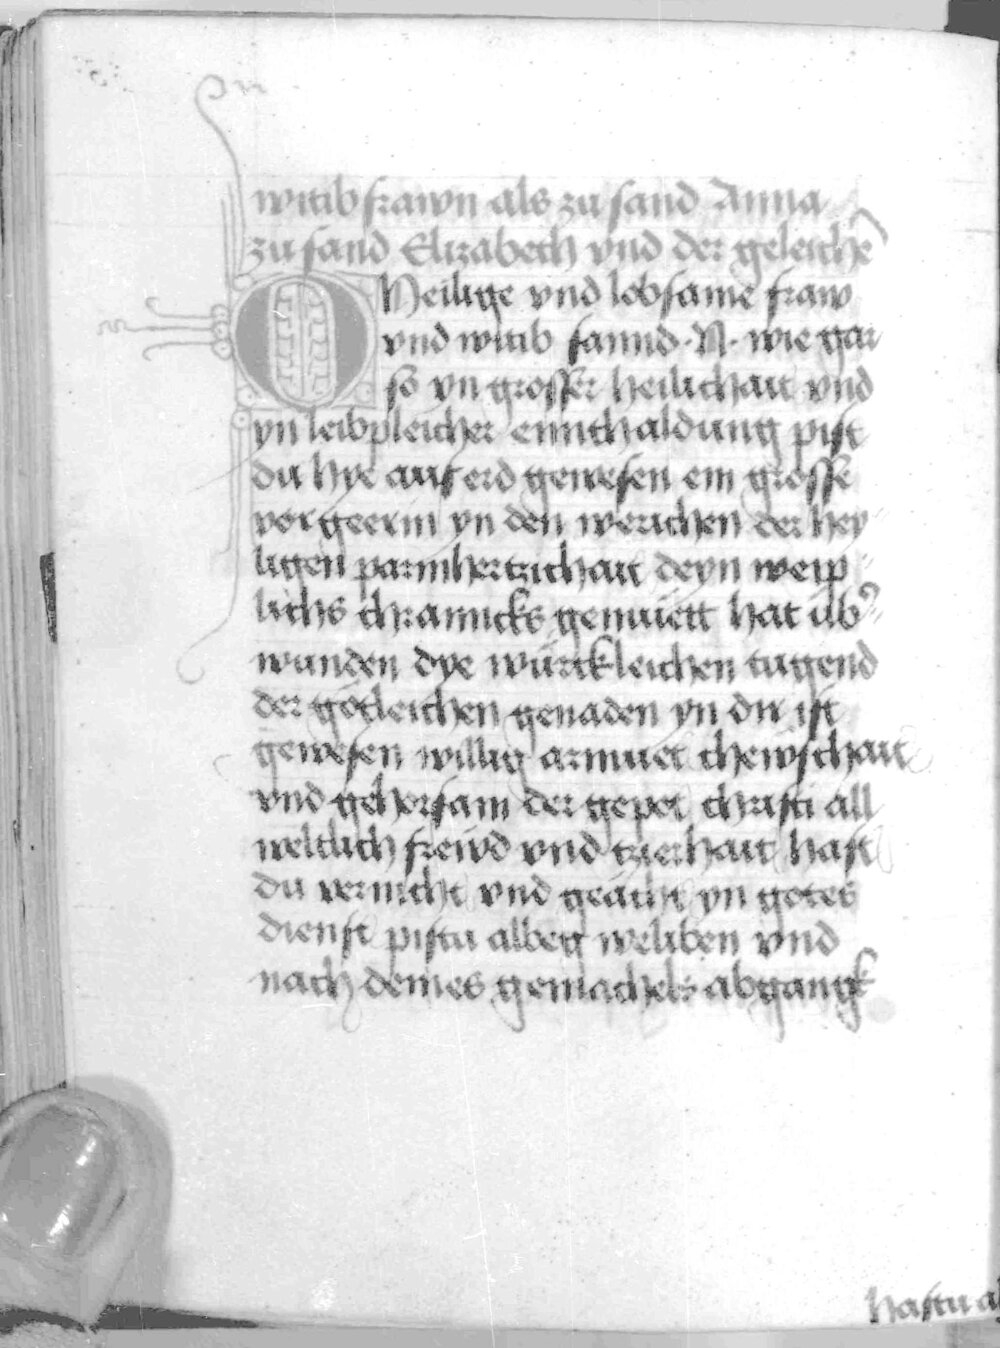 witib frawn als zu sand Anna
zu sand Elizabeth vnd der geleichē
O Heilige vnd lobsame fraw
vnd witib sannd · N · wie gar
so yn grosser heilichait vnd
yn leibpleicher ennthaldung pist
du hye auf erd gewesen ein grosse
vorgeerin yn den werichen der hey
ligen parmhertzichait deyn weip
lichs chranncks gemuett hat ub
wunden dye würckleichen tugend
der götleichen genaden yn dir ist
gewesen willig armuet chewschait
vnd gehorsam der gepet christi all
weltlich frewd vnd tzierhait hast
du vernicht vnd geacht yn gotes
dienst pistu albeg weliben vnd
nach deines gemachels abgangk
hastu al